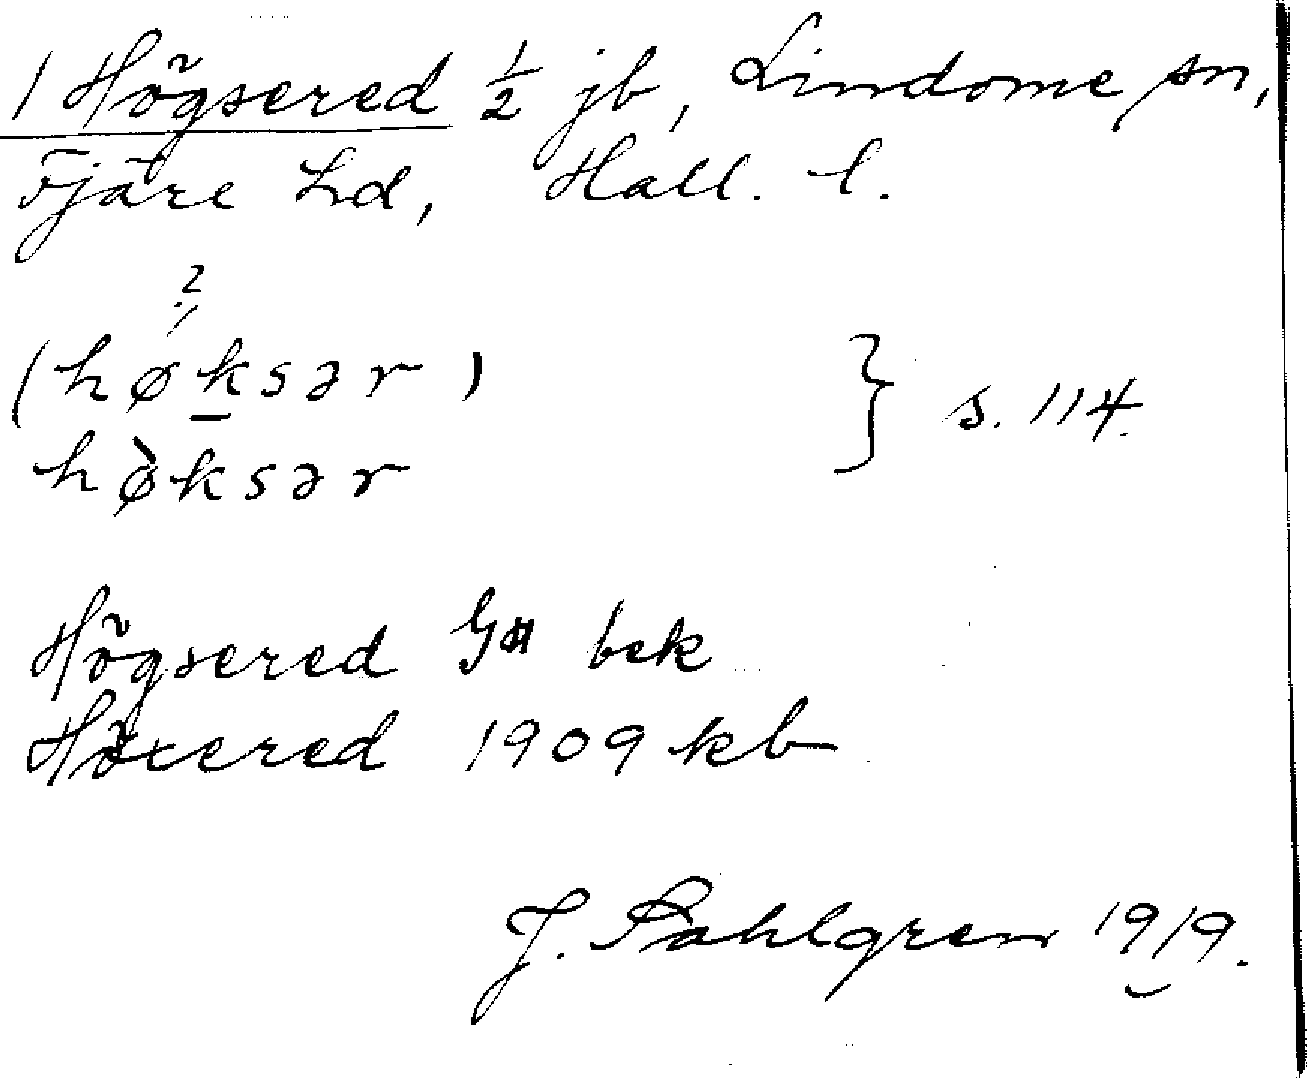 1 Högsered ½ jb, Lindome sn,
Fjäre hd, Hall. l.
?
(høksər)
hø̀ksər } s. 114.
Högsered bek
Höxered 1909 kb
J. Sahlgren 1919.